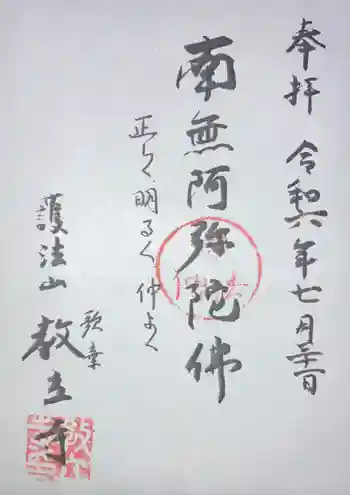 奉拝 令和六年七月三十一日
南無阿弥陀佛
正しく 明るく 仲よく
護法山 教立寺